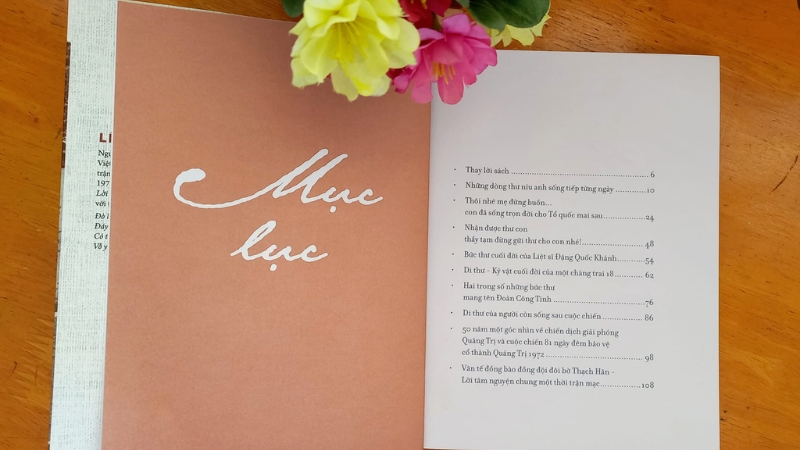 LÍ
Ngư
Việt
trận
197
Lời
với t
Đò l
Đáy
Có t
Vỗ y
Mục
lục
• Thay lời sách ................................................ 6
• Những dòng thư níu anh sống tiếp từng ngày ............ 10
• Thôi nhé mẹ đừng buồn...
con đã sống trọn đời cho Tổ quốc mai sau ............ 24
• Nhận được thư con
thầy tạm dừng gửi thư cho con nhé! ..................... 48
• Bức thư cuối đời của Liệt sĩ Đặng Quốc Khánh ......... 54
• Di thư - Kỷ vật cuối đời của một chàng trai 18 ............ 62
• Hai trong số những bức thư
mang tên Đoàn Công Tính ............................... 76
• Di thư của người còn sống sau cuộc chiến ............... 86
• 50 năm một góc nhìn về chiến dịch giải phóng
Quảng Trị và cuộc chiến 81 ngày đêm bảo vệ
cổ thành Quảng Trị 1972 ................................ 98
• Văn tế đồng bào đồng đội đôi bờ Thạch Hãn -
Lời tâm nguyện chung một thời trận mạc ............... 108